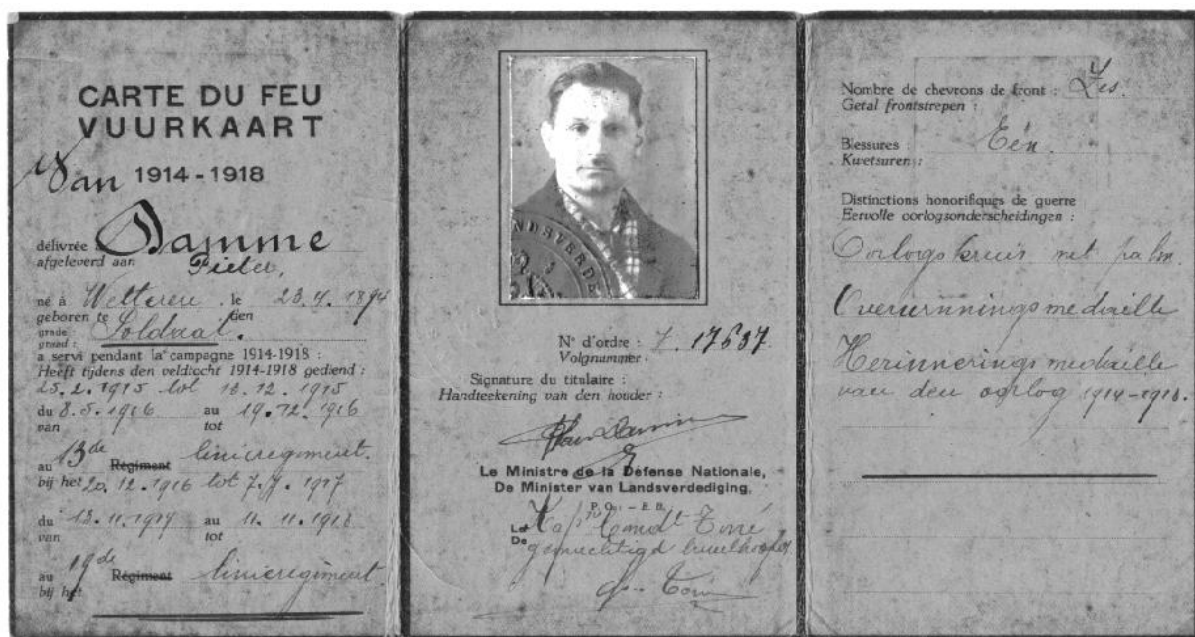 CARTE DU FEU
VUURKAART
Van 1914-1918
délivrée à Damme
afgeleverd aan Pieter,
né à Wetteren, le 23.4.1894
geboren te den
grade : Soldaat.
graad :
a servi pendant la campagne 1914-1918 :
Heeft tijdens den veldtocht 1914-1918 gediend :
25.2.1915 tot 13.12.1915
du 8.5.1916 au 19.12.1916
van tot
au 13de Régiment linieregiment.
bij het 20.12.1916 tot 1917
du 13.11.1917 au 11.11.1918
van tot
au 19de Régiment linieregiment
bij het
LANDSVERDE
N° d'ordre :
Volgnummer :
Signature du titulaire :
Handteekening van den houder :
Van Damme
Le Ministre de la Défense Nationale,
De Minister van Landsverdediging,
P. O. - E. B.
Le Kapn Comdt
De gemachtigd
Nombre de chevrons de front : Zes.
Getal frontstrepen :
Blessures : Eén.
Kwetsuren :
Distinctions honorifiques de guerre
Eervolle oorlogsonderscheidingen :
Oorlogskruis met palm.
Overwinningsmedaille
Herinneringsmedaille
van den oorlog 1914-1918.